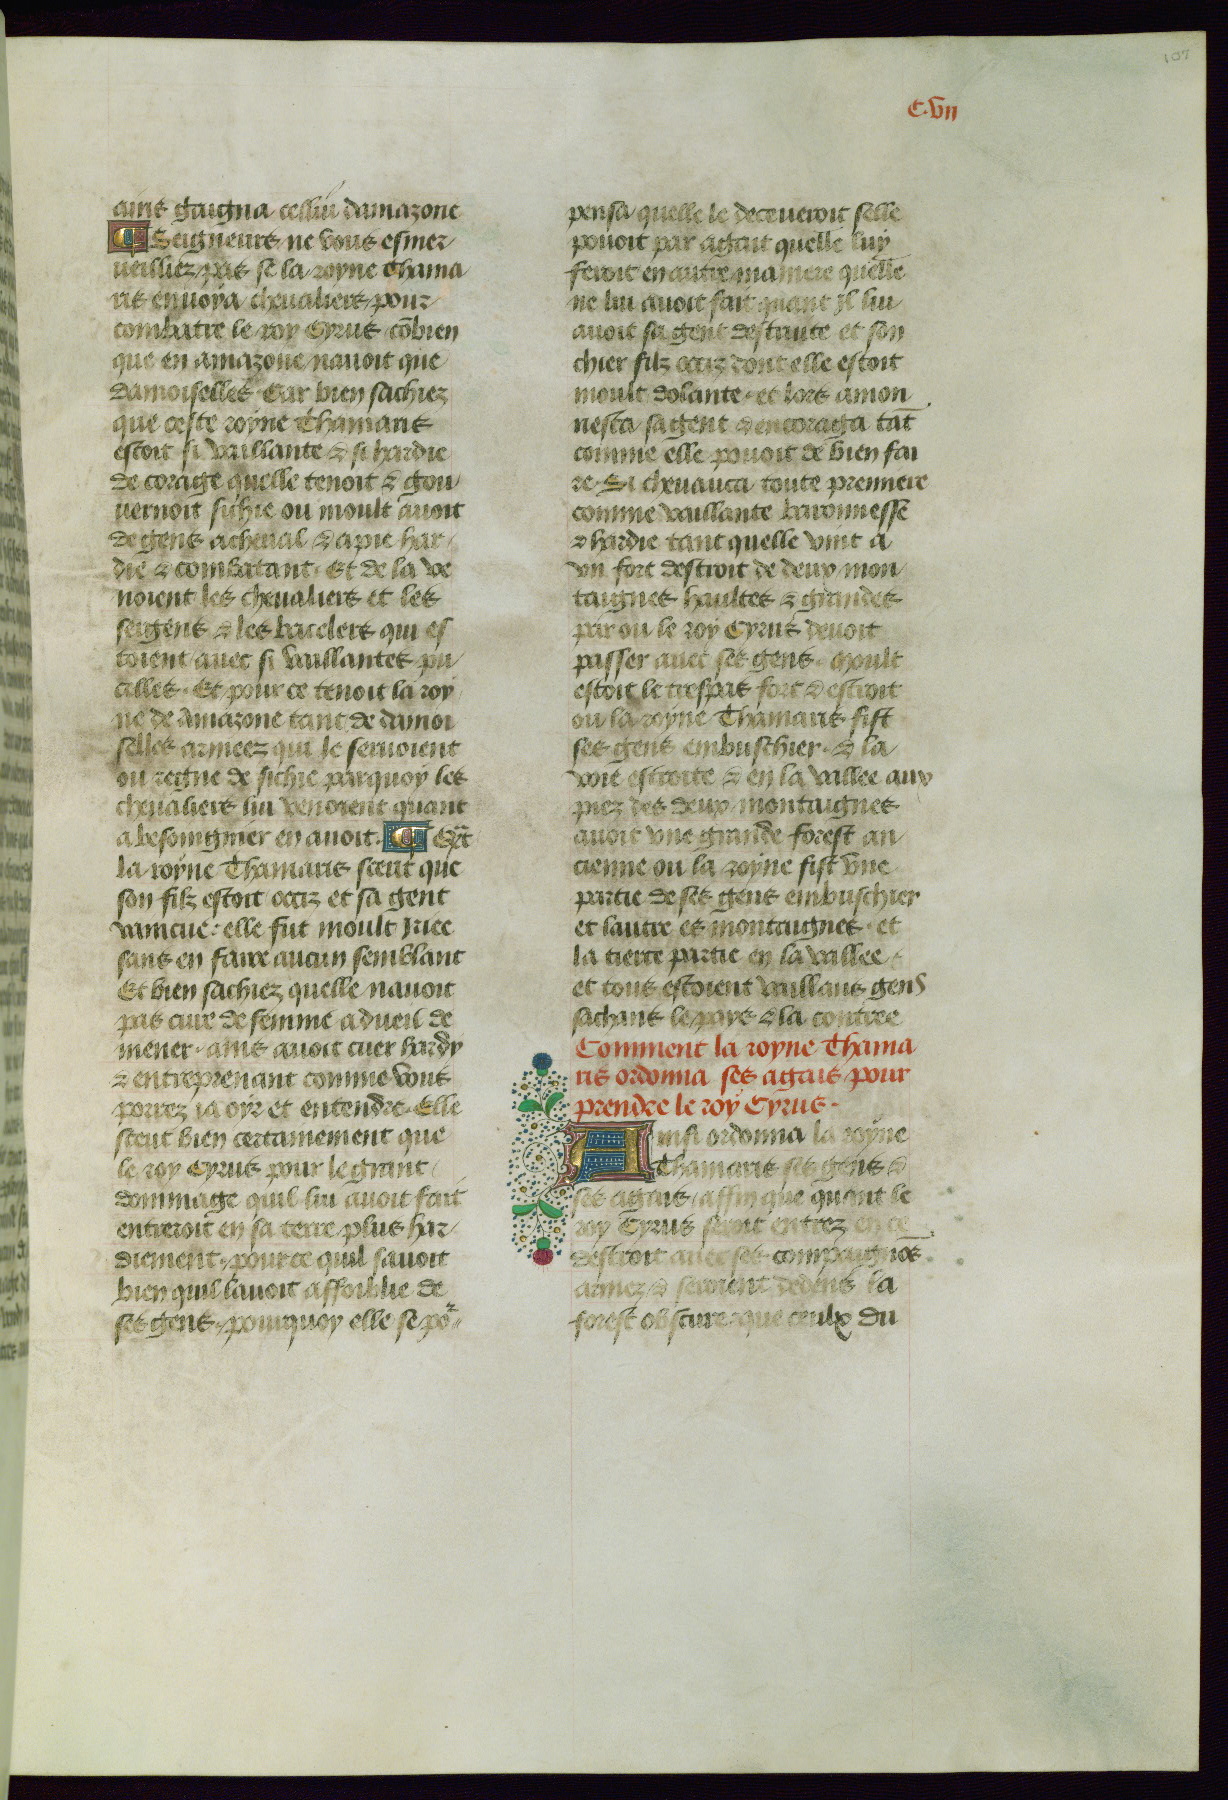 107
C.vii
ains gaigna celluy damazone
Seigneurs ne vous esmer
veilliez pas se la royne Thama
ris envoya chevaliers pour
combatre le roy Cyrus cōbien
que en amazone navoit que
damoiselles. Car bien sachiez
que ceste royne Thamaris
estoit si vaillante & si hardie
de corage quelle tenoit & gou
vernoit sichie ou moult avoit
de gens a cheval & a pie har
die & combatant. Et de la ve
noient les chevaliers et les
sergens & les bacelers qui es
toient avec si vaillantes pu
celles. Et pour ce tenoit la roy
ne de Amazone tant de damoi
selles armeez qui le servoient
ou regne de sichie parquoy les
chevaliers lui venoient quant
a besoingnier en avoit. Qāt
la royne Thamaris sceut que
son filz estoit occiz et sa gent
vaincue: elle fut moult iriee
sans en faire aucun semblant
Et bien sachiez quelle navoit
pas cure de femme a dueil de
mener. ains avoit cuer hardy
& entreprenant comme vous
porrez ia oyr et entendre. Elle
sceut bien certainement que
le roy Cyrus pour le grant
dommage quil lui avoit fait
entreroit en sa terre plus har
diement. pour ce quil savoit
bien quil lavoit affoiblie de
ses gens. pourquoy elle se po^r
pensa quelle le decevroit selle
povoit par agait quelle luy
feroit en autre maniere quelle
ne lui avoit fait quant il lui
avoit sa gent destruite et son
chier filz occiz dont elle estoit
moult dolante. et lors amon
nesta sa gent & encoraga tāt
comme elle povoit de bien fai
re. Si chevauca toute premiere
comme vaillante baronnesse
& hardie tant quelle vint a
un fort destroit de deux mon
taignes haultes & grandes
par ou le roy Cyrus devoit
passer avec ses gens. Moult
estoit le trespas fort & estroit
ou la royne Thamaris fist
ses gens embuschier. & la
voie estroite & en la vallee aux
piez des deux montaignes
avoit une grande forest an
cienne ou la royne fist une
partie de ses gens embuschier
et lautre es montaignes. et
la tierce partie en la vallee
et tous estoient vaillans gens
sachans le pays & la contree
Comment la royne Thama
ris ordonna ses agais pour
prendre le roy Cyrus.
Ainsi ordonna la royne
Thamaris ses gens &
ses agais affin que quant le
roy Cyrus seroit entrez en ce
destroit avec ses compaignōs
armez & seroient dedens la
forest obscure: que ceulx du